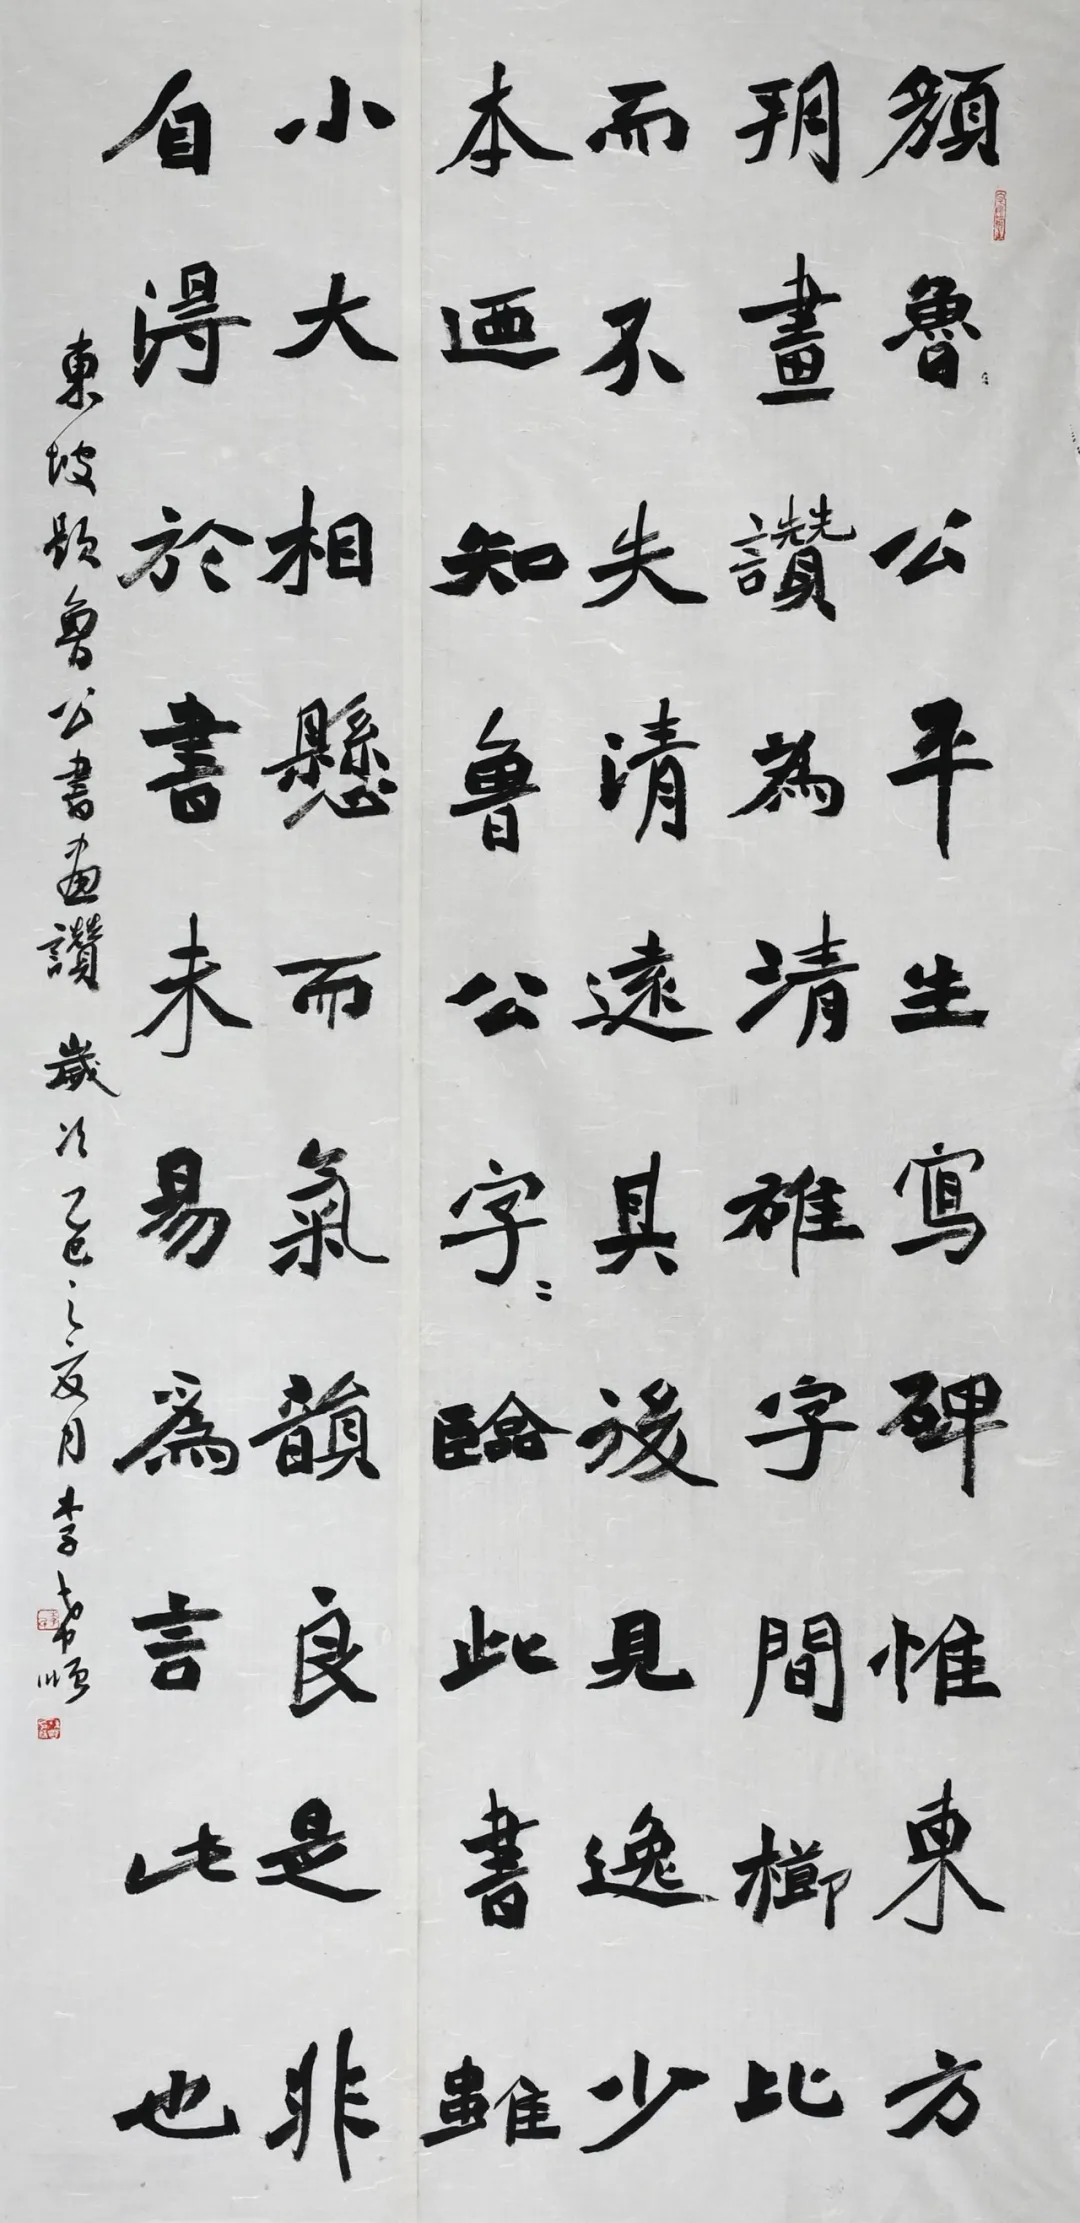 顏魯公平生寫碑惟東方
朔畫讚為清雄字間櫛比
而不失清遠其後見逸少
本迺知魯公字〻臨此書雖
小大相懸而氣韻良是非
自得於書未易爲言此也
東坡題魯公書画讚 歲次乙巳之夏月李希順